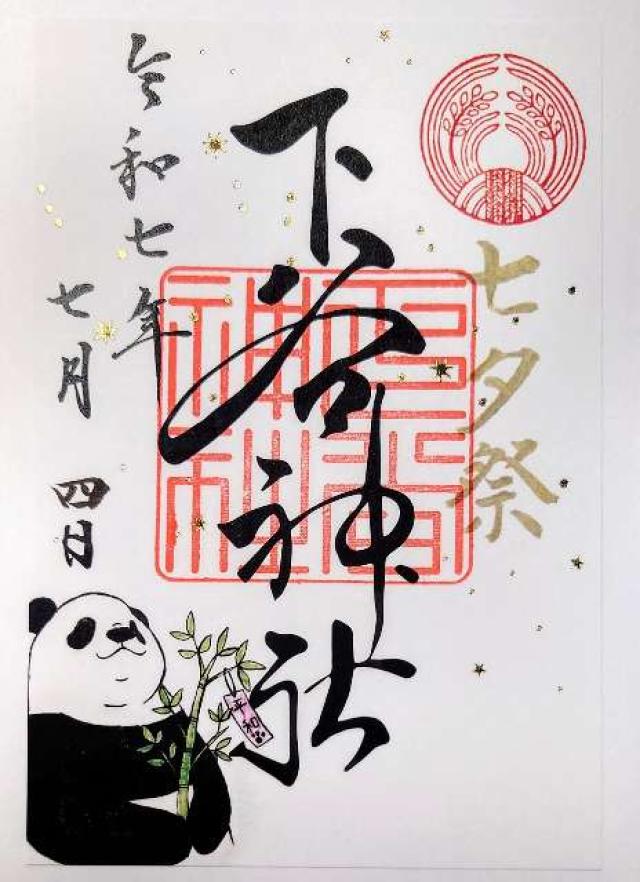 七夕祭
下谷神社
令和七年
七月 四日
平和